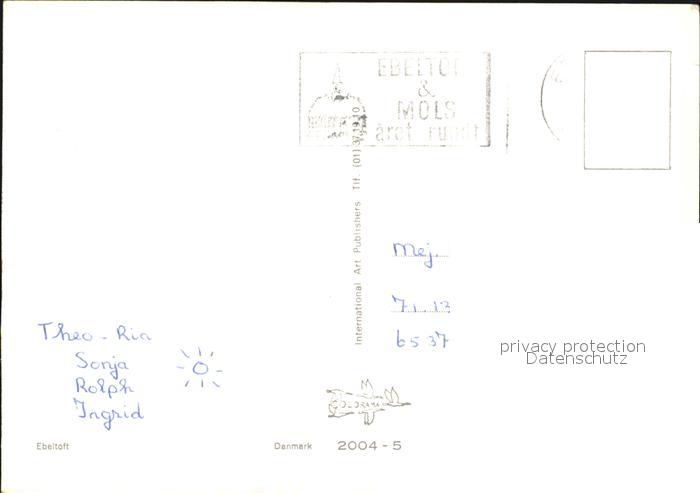 EBELTOF
&
MOLS
året rundt
International Art Publishers Tlf. (01) 37 19 10
Mej.
71, 12
6537
Theo - Ria
Sonja
Rolph
Ingrid
privacy protection
Datenschutz
Ebeltoft
Danmark 2004 - 5